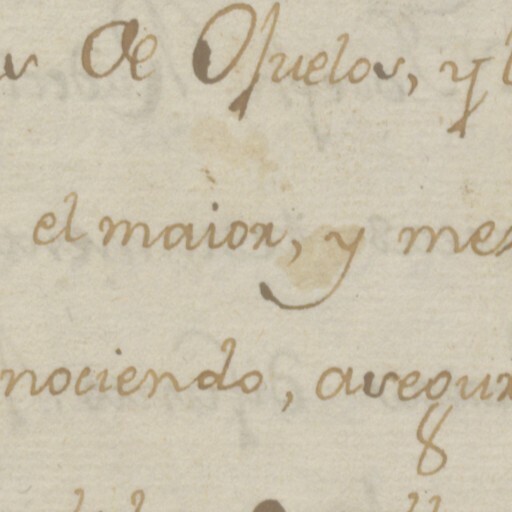 de Osuelos, y
el maior, y me
nociendo, asegur